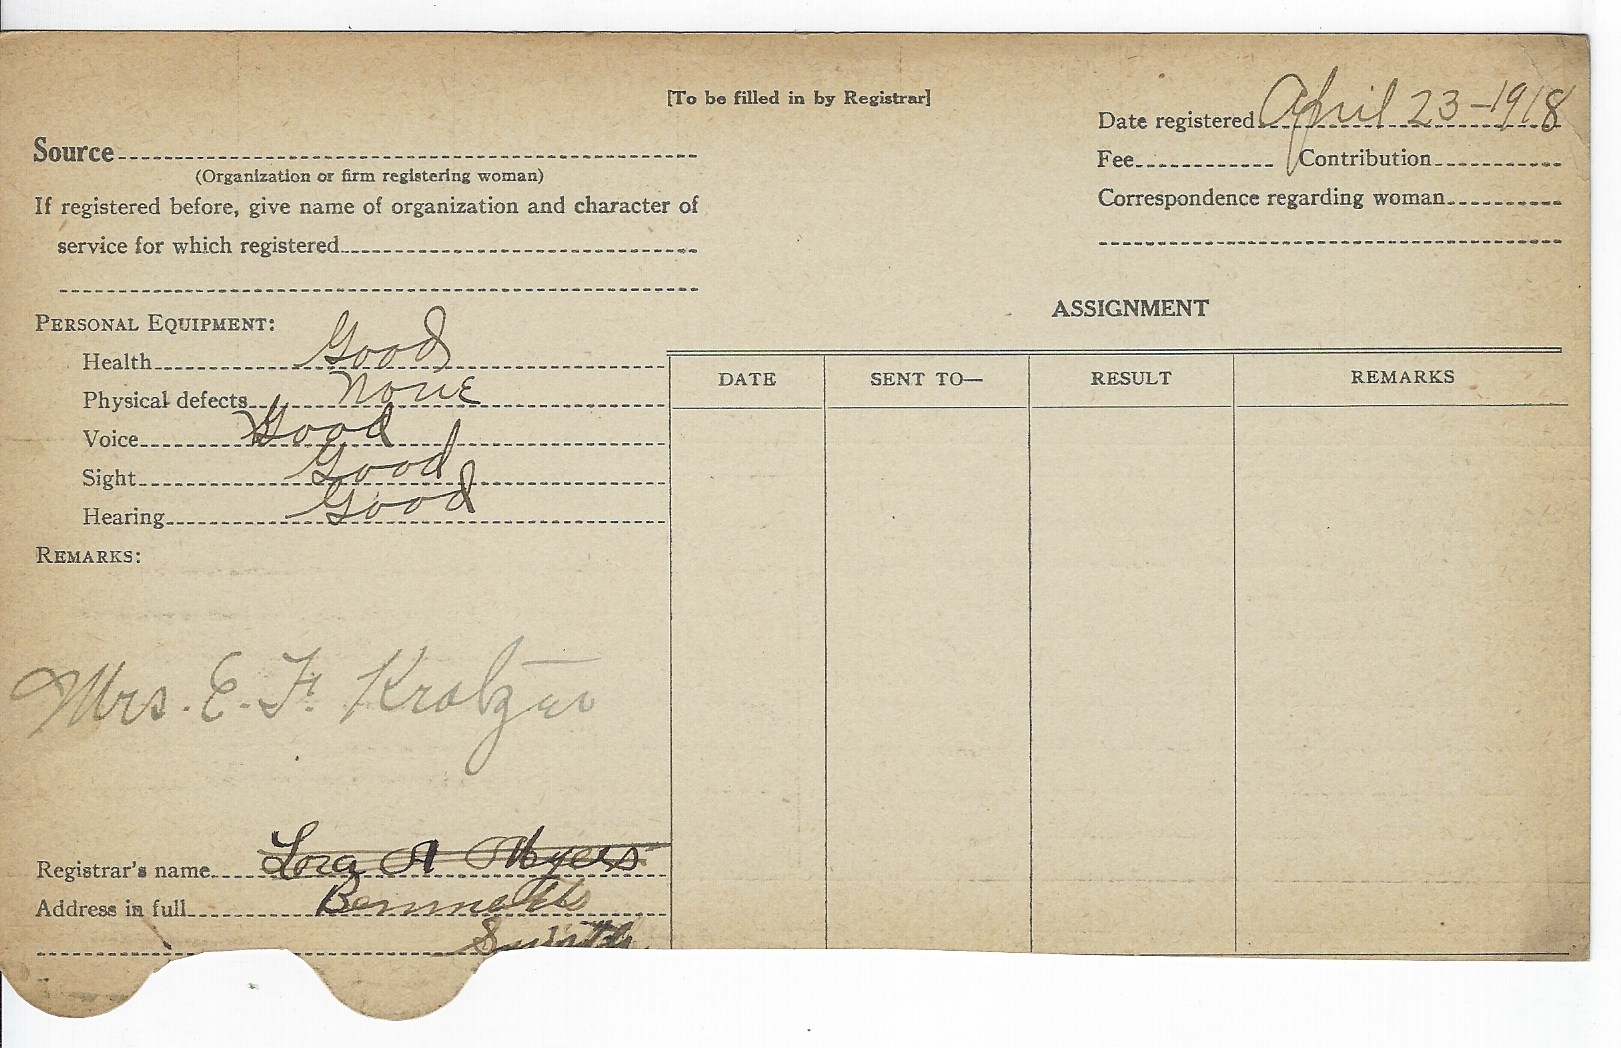 [To be filled in by Registrar]
Date registered April 23-1918
Source
Fee Contribution
(Organization or firm registering woman)
Correspondence regarding woman
If registered before, give name of organization and character of
service for which registered
ASSIGNMENT
PERSONAL EQUIPMENT:
Health Good
DATE SENT TO— RESULT REMARKS
Physical defects None
Voice Good
Sight Good
Hearing Good
REMARKS:
Mrs. E. F.
Registrar's name Lora A Myers
Address in full